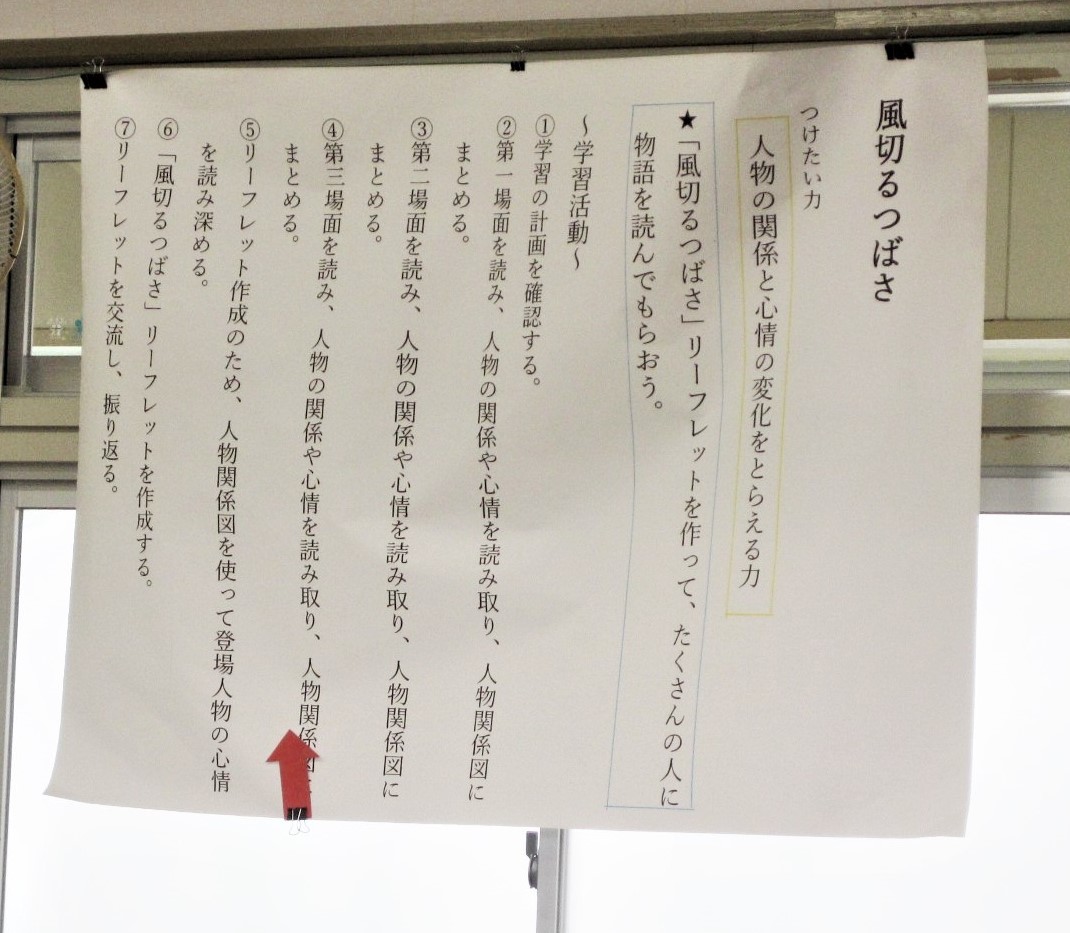 風切るつばさ
つけたい力
人物の関係と心情の変化をとらえる力
★「風切るつばさ」リーフレットを作って、たくさんの人に
物語を読んでもらおう。
～学習活動～
①学習の計画を確認する。
②第一場面を読み、人物の関係や心情を読み取り、人物関係図に
まとめる。
③第二場面を読み、人物の関係や心情を読み取り、人物関係図に
まとめる。
④第三場面を読み、人物の関係や心情を読み取り、人物関係図に
まとめる。
⑤リーフレット作成のため、人物関係図を使って登場人物の心情
を読み深める。
⑥「風切るつばさ」リーフレットを作成する。
⑦リーフレットを交流し、振り返る。